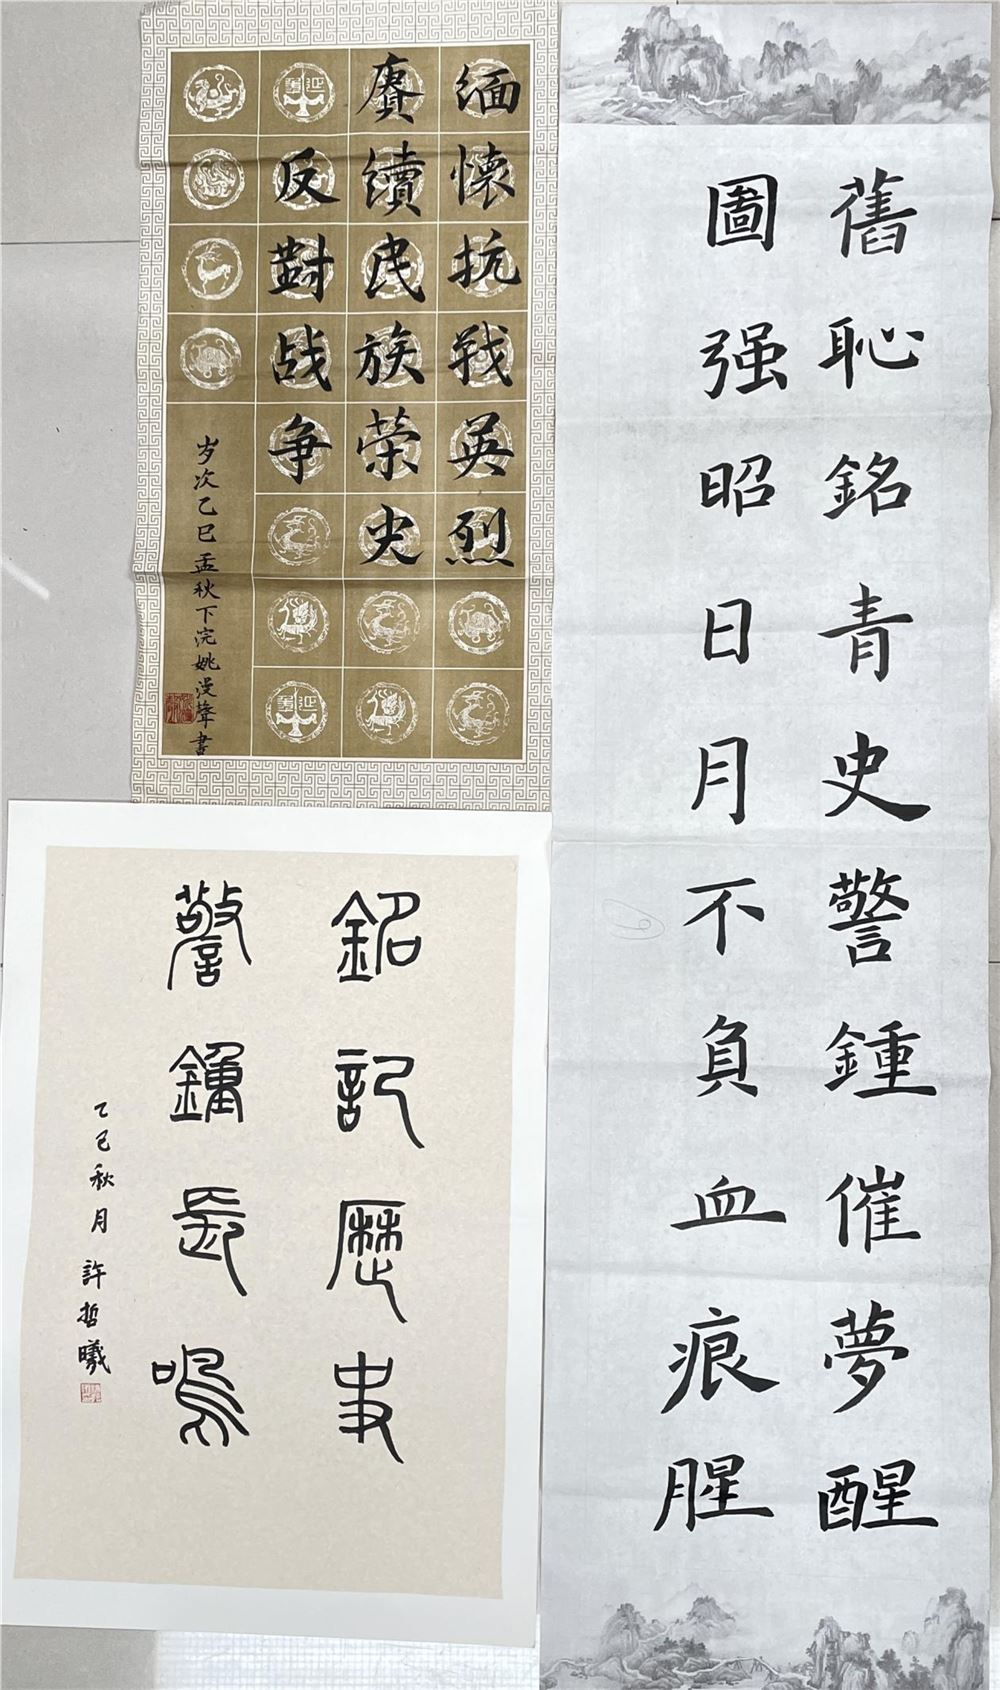 緬懷抗戰英烈
賡續民族荣史
反對战争
岁次乙巳孟秋下浣姚漫聲書
舊恥銘青史警鍾催夢醒
圖强昭日月不負血痕腥
銘記歷史
警鍾長鳴
乙巳秋月許哲曦